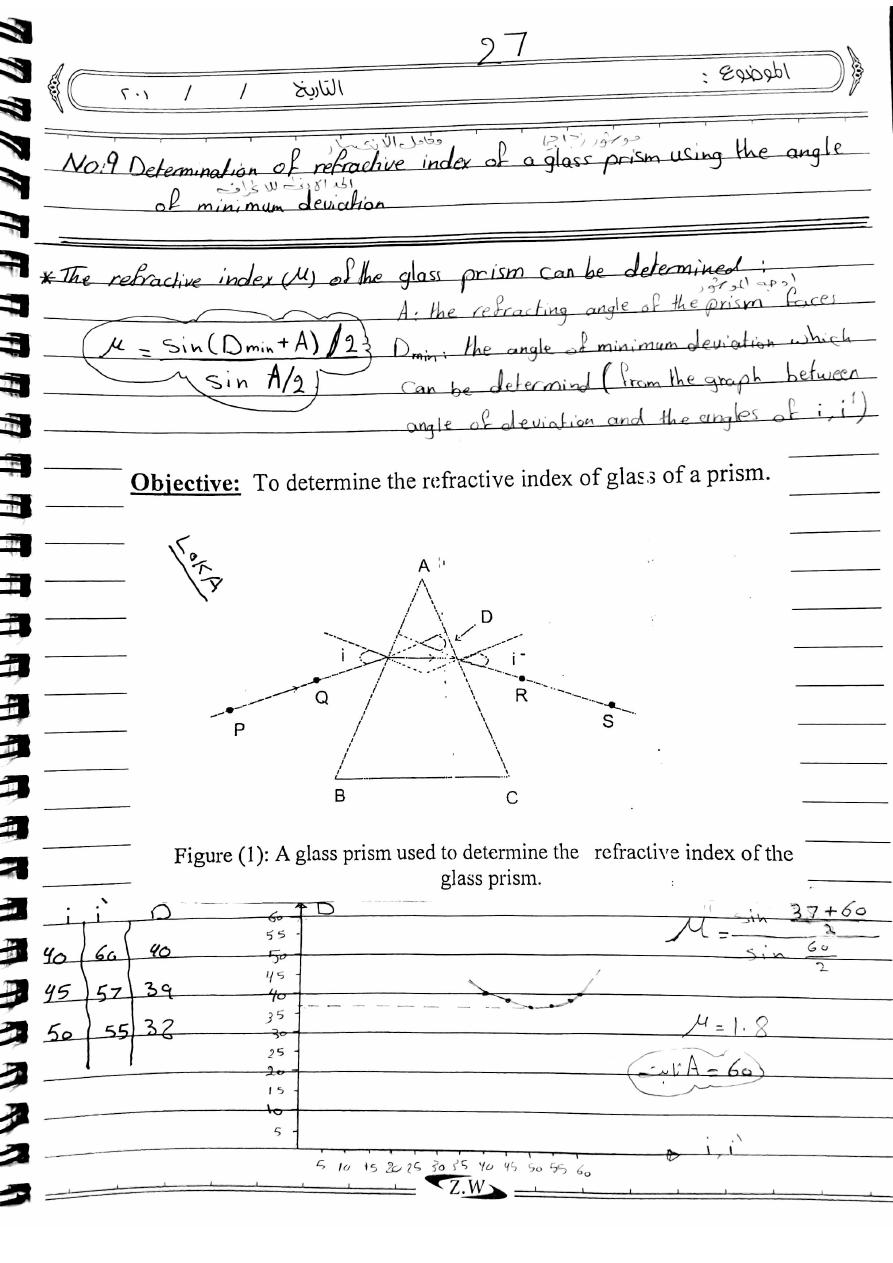 27
الموضوع :
التاريخ / / ٢٠١
موشور زجاجي
No:9 Determination of refractive index of a glass prism using the angle
of minimum deviation
* The refractive index (μ) of the glass prism can be determined :
A: the refracting angle of the prism faces
μ = sin(Dmin + A) /2}
sin A/2
Dmin: the angle of minimum deviation which
can be determind (from the graph between
angle of deviation and the angles of i, i')
Objective: To determine the refractive index of glass of a prism.
LOKA
A
D
i i-
Q R
P S
B C
Figure (1): A glass prism used to determine the refractive index of the
glass prism.
i i` D
40 60 40
45 57 39
50 55 38
D
60
55
50
45
40
35
30
25
20
15
10
5
5 10 15 20 25 30 35 40 45 50 55 60
i, i`
μ = sin 37+60
2
sin 60
2
μ = 1.8
ثابت A = 60
Z.W